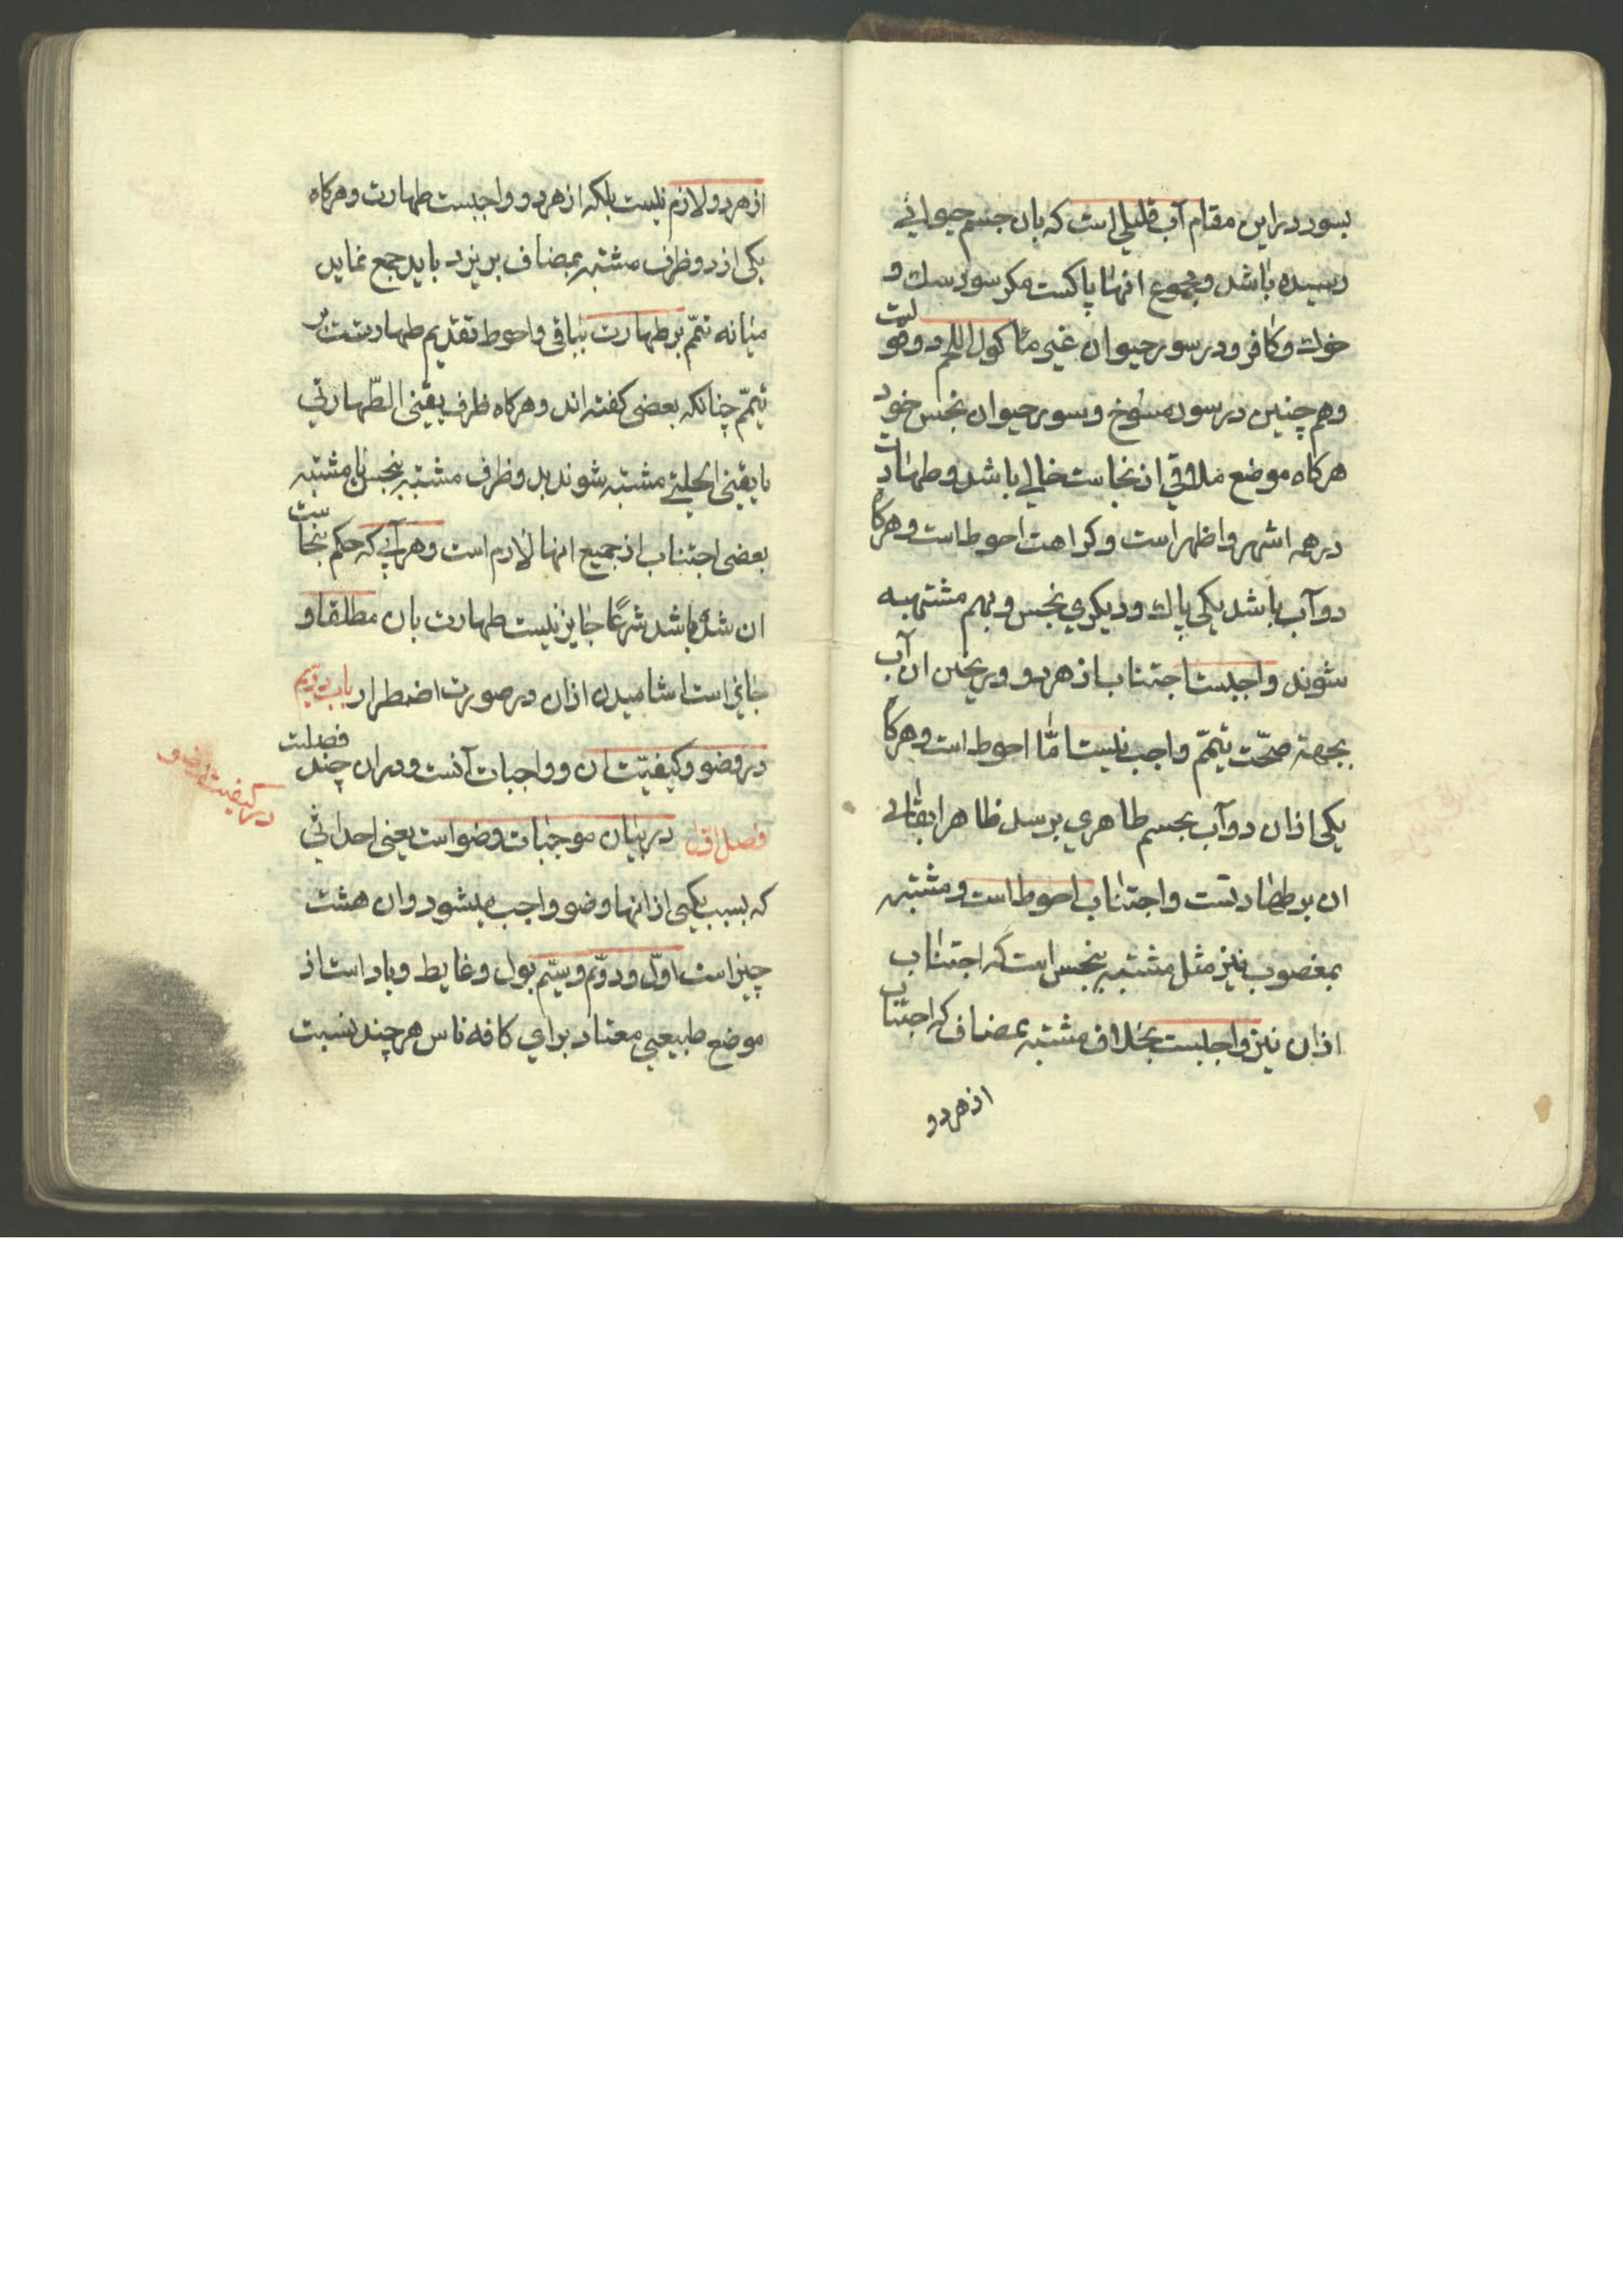 بسور در این مقام آب قلیلی است که بان جسم حیوانی
رسیده باشد و مجموع انها پاکست مکر سور سك و
خوك و کافر و در سور حیوان غیر ماکول اللحم دو قولست
وهم چنین در سور مسوخ و سور حیوان نجس خور
هرکاه موضع ملاقی از نجاست خالی باشد و طهارت
در همه اشهر و اظهر است و کراهت احوط است و هرکاه
دو آب باشد یکی پاك و دیکری نجس و بهم مشتبه
شوند واجبست اجتناب از هر دو و ریختن ان آب
بجهة صحّت تیمّم واجب نیست امّا احوط است و هرکاه
یکی از ان دو آب بجسم طاهری برسد ظاهرا بقای
ان بر طهارتست و اجتناب احوط است و مشتبه
بمغصوب نیز مثل مشتبه بنجس است که اجتناب
از ان نیز واجبست بخلاف مشتبه بمضاف که اجتناب
از هر دو
از هر دو لازم نیست بلکه از هر دو واجبست طهارت و هرکاه
یکی از دو ظرف مشتبه بمضاف بریزد باید جمع نماید
میانه تیمّم بر طهارت بباقی و احوط تقدیم طهارتست بر
تیمّم چنانکه بعضی کفته اند و هرکاه ظرف یقینی الطّهارتی
یا یقینی الحلیّه مشتبه شوند بد و ظرف مشتبه بنجس یا مشتبه
بعضی اجتناب از جمیع انها لازم است و هر آبی که حکم بنجاست
ان شده باشد شرعًا جایز نیست طهارت بان مطلقا و
جایز است اشامیدن از ان در صورت اضطرار باب دویّم
در وضو و کیفیّت ان و واجبات آنست و در ان چند فصلست
در کیفیت وضو
فصل اوّل در بیان موجبات وضو است یعنی احداثی
که بسبب یکی از انها وضو واجب میشود و ان هشت
چیز است اوّل و دوّیم و سیّم بول و غایط و باد است از
موضع طبیعی معتاد برای کافه ناس هر چند نسبت